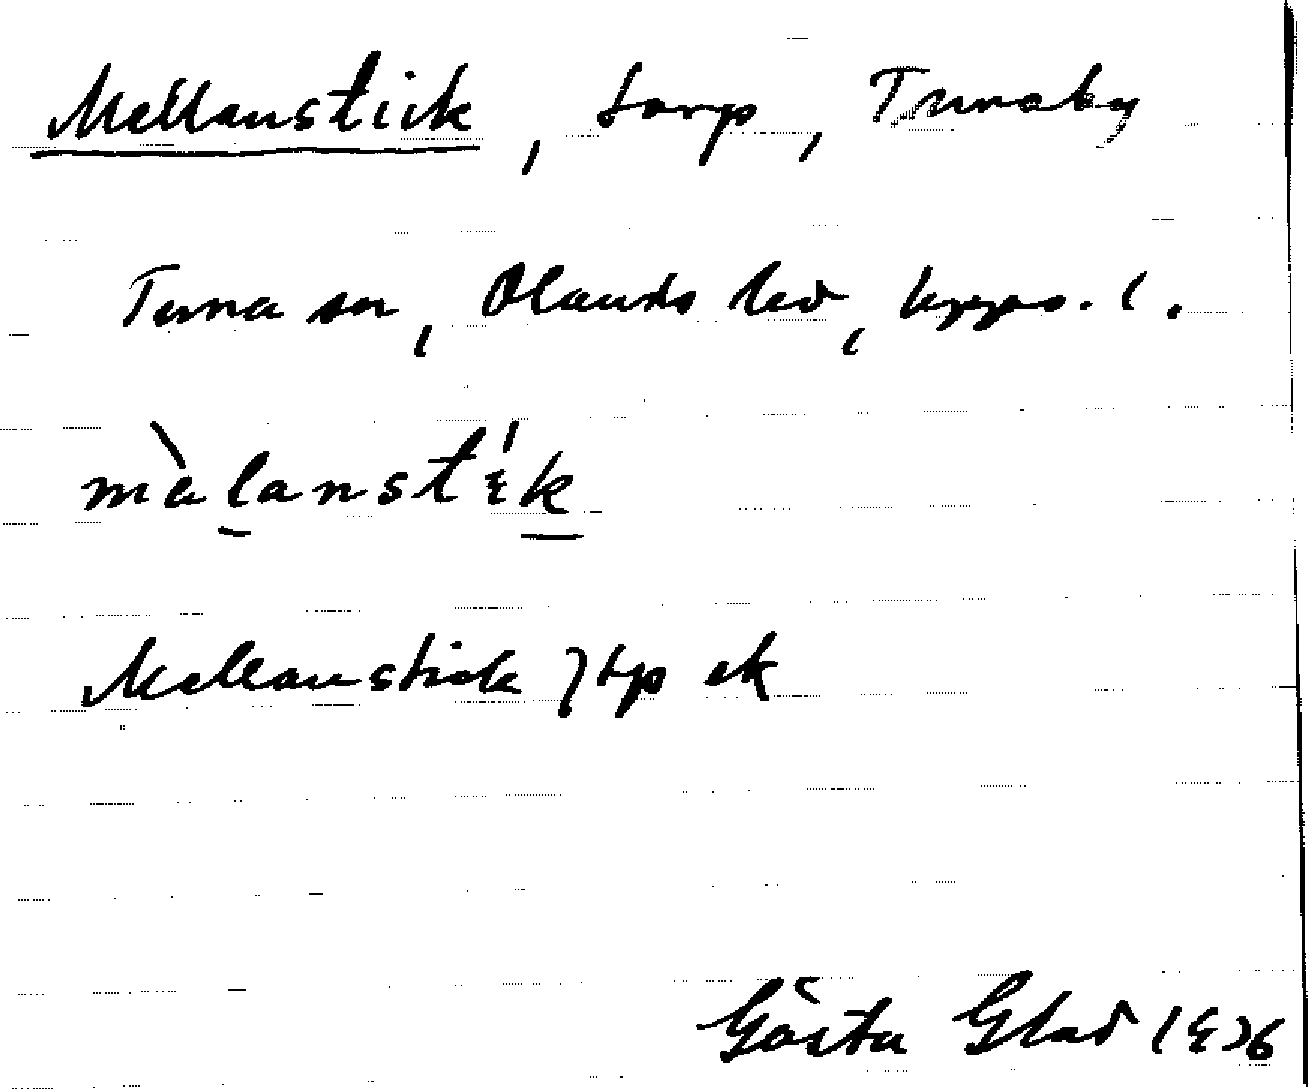 Mellanstick, torp, Tunaby
Tuna sn, Olands hd, Upps. l.
màlanstɛ́k
Mellanstick } tp ek
Gösta Glad 1936